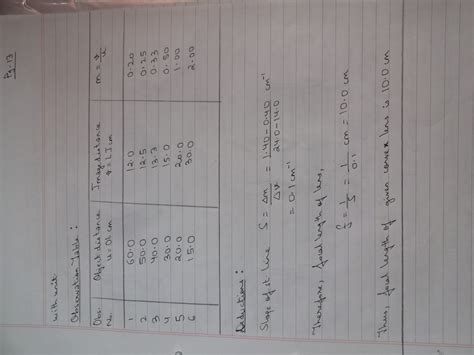 Pg-13
with unit.
Observation Table:
Obs. No. Object distance u = OI cm Image distance v = LI cm m = v/u
1 60.0 12.0 0.20
2 50.0 12.5 0.25
3 40.0 13.3 0.33
4 30.0 15.0 0.50
5 20.0 20.0 1.00
6 15.0 30.0 2.00
Deductions:
Slope of st. line S = Δm/Δv = 1.40-0.40/24.0-14.0 cm⁻¹
= 0.1 cm⁻¹
Therefore, focal length of lens,
f = 1/S = 1/0.1 cm = 10.0 cm
Thus, focal length of given convex lens is 10.0 cm